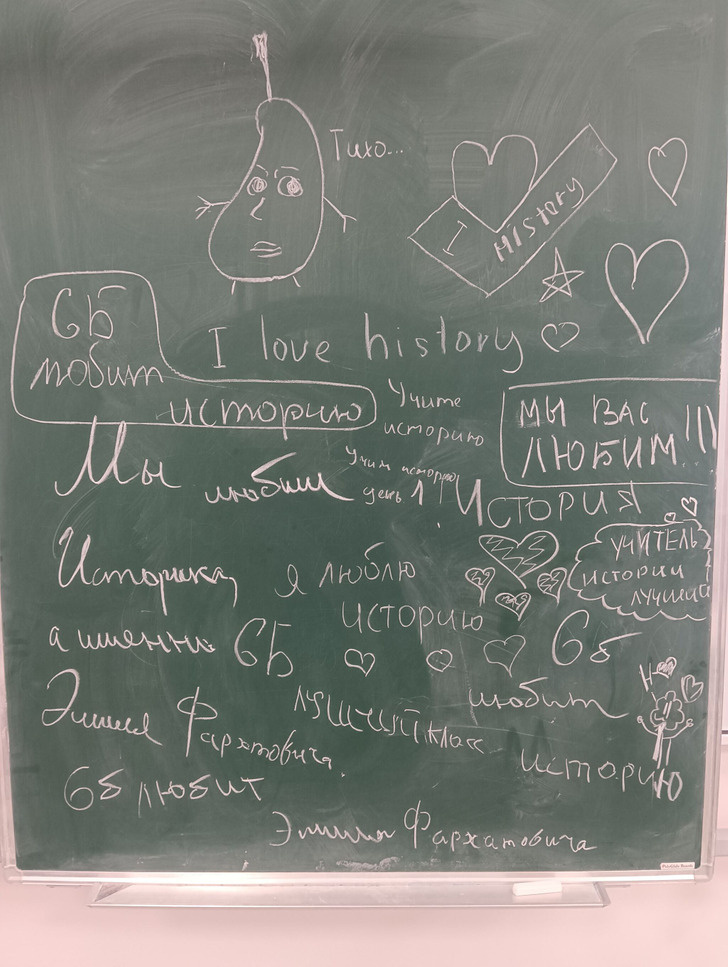 Тихо...
I HISTORY
6Б
любит
историю
I love history
Учите
историю
МЫ ВАС
ЛЮБИМ!!!
Мы любим
Учим историю
день 1
! ИСТОРИЯ
Историка,
я люблю
историю
УЧИТЕЛЬ
истории
лучший
а именно 6Б
6Б
любит
историю
Эмиля Фархатовича
лучший класс
6Б любит
Эмиля Фархатовича